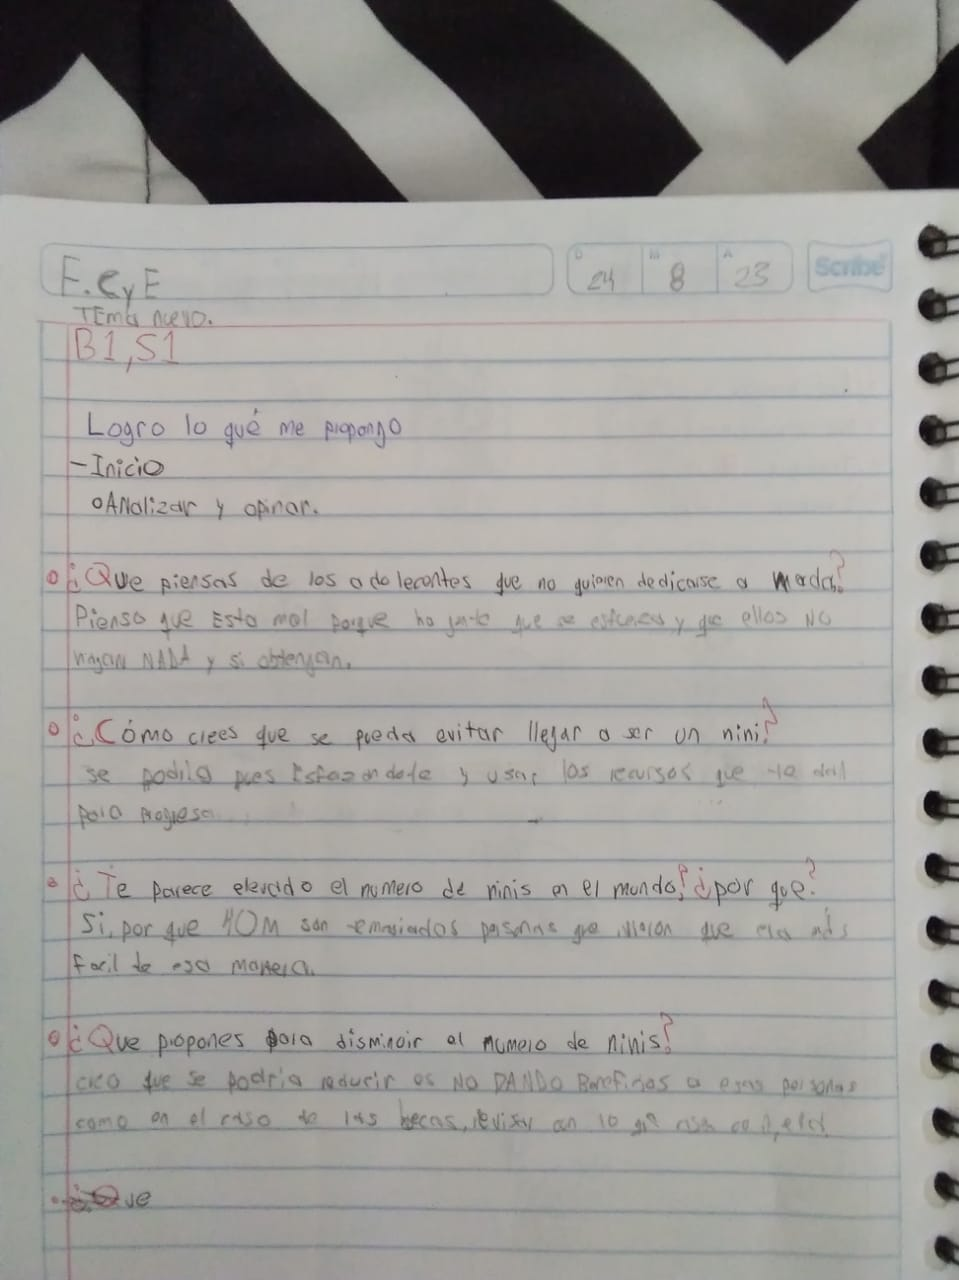 F.CyE
D 24 M 8 A 23 Scribe
TEma nuevo.
B1,S1
Logro lo qué me propongo
-Inicio
oANalizar y opinar.
¿Que piensas de los adolecentes que no quieren dedicarse a nada?
Pienso que Esta mal porque ha gente que se esfuerza y que ellos NO
hagan NADA y si obtengan.
¿Cómo crees que se pueda evitar llegar a ser un nini?
se podria pues y usar los recursos que te dan
para progresa
¿Te parece elevado el numero de ninis en el mundo? ¿por que?
Si, por que 40M son personas que que era más
facil de esa manera.
¿Que propones para disminoir el numero de ninis?
creo que se podria reducir es NO DANDO a esas personas
como en el caso de las becas, en lo
¿Que